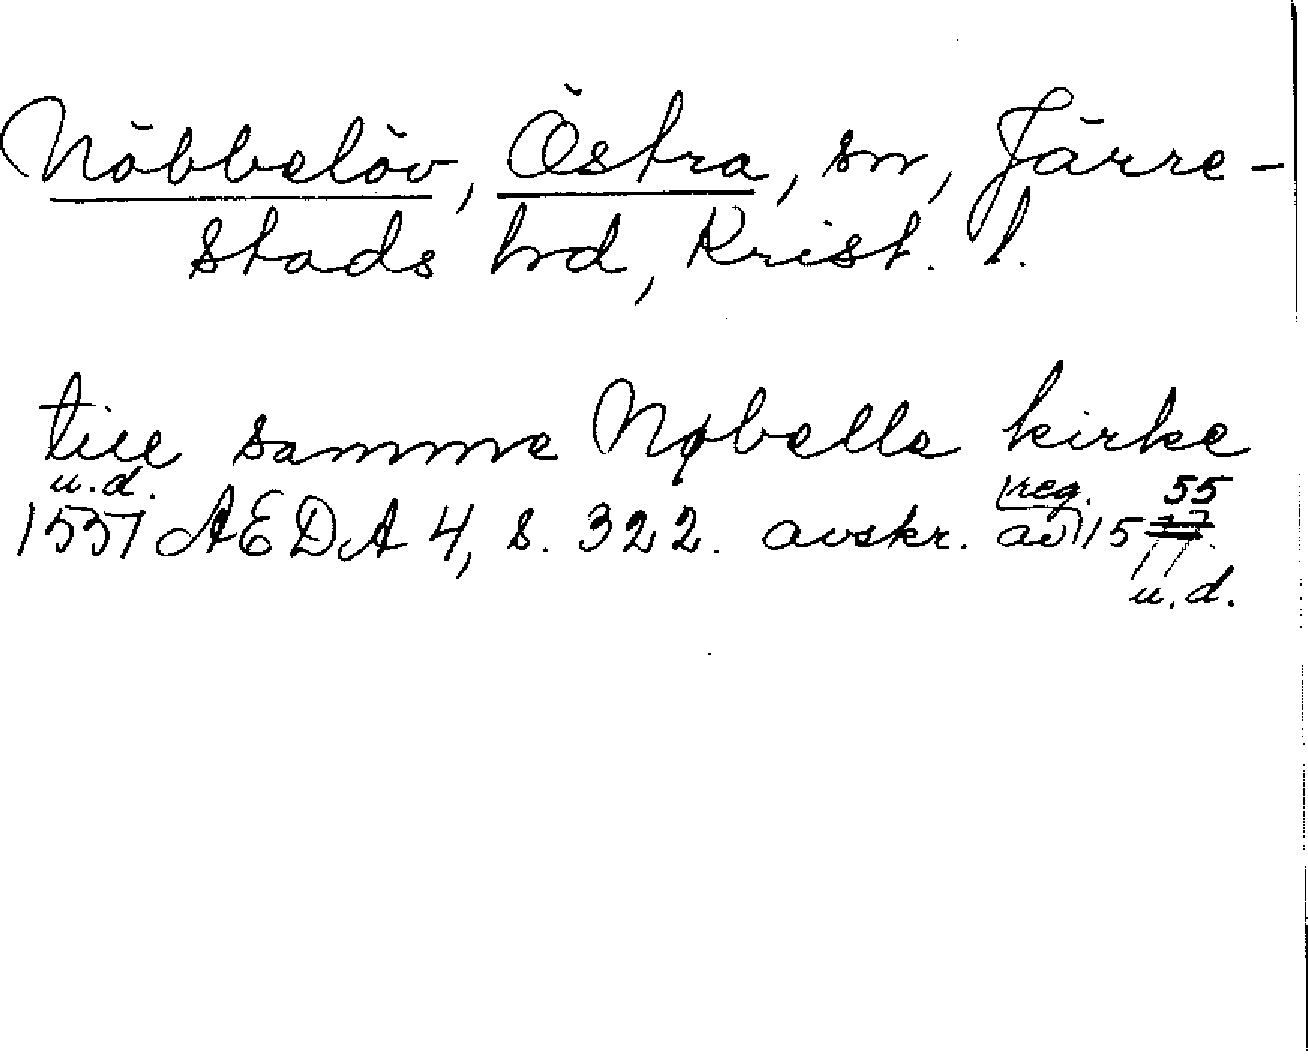 Nöbbelöv, Östra, sn, Järre-
stads hd, Krist. l.
till samme Nøbelle kirke
u.d. reg. 55
1537 AEDA 4, s. 322. avskr. av 15
u.d.